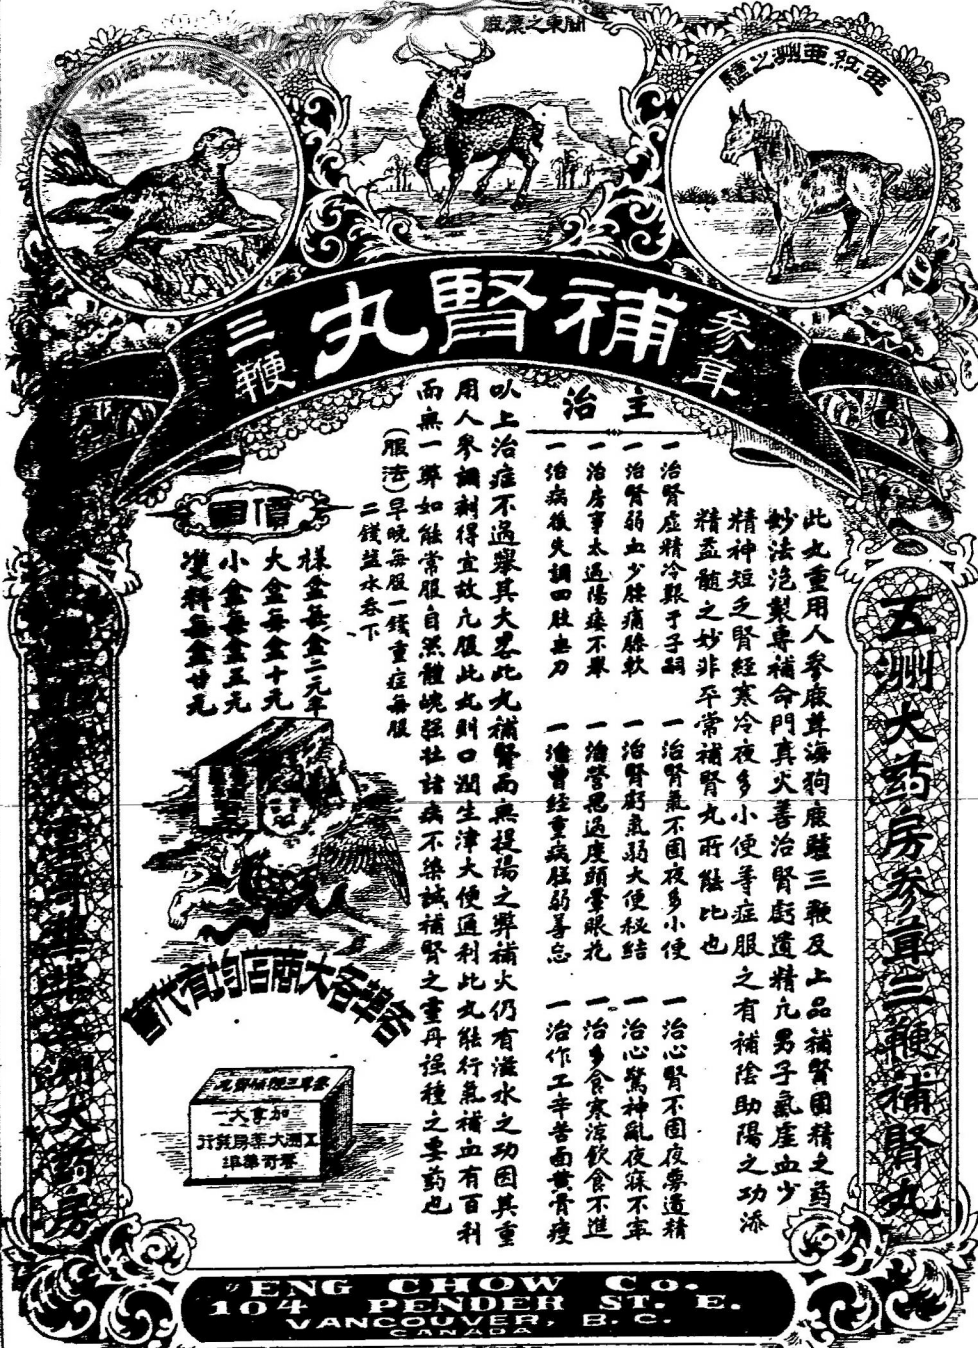 北美洲之海狗
亞細亞洲之驢
參茸
補腎丸
三鞭
五洲大葯房參茸三鞭補腎丸
此丸重用人參鹿茸海狗鹿驢三鞭及上品補腎固精之葯
妙法泡製專補命門真火善治腎虧遺精凢男子氣虛血少
精神短乏腎經寒冷夜多小便等症服之有補陰助陽之功添
精益髓之妙非平常補腎丸所能比也
主治
一治腎虛精冷艱于子嗣 一治腎氣不固夜多小便 一治心腎不固夜夢遺精
一治腎弱血少腰痛膝軟 一治腎虧氣弱大便秘結 一治心驚神亂夜寐不寧
一治房事太過陽痿不舉 一治營思過度頭暈眼花 一治多食寒涼飲食不進
一治病後失調四肢無力 一治曾經重病腦弱善忘 一治作工辛苦面黃骨瘦
以上治症不過舉其大畧此丸補腎而無提陽之弊補火仍有滋水之功因其重
用人參調劑得宜故凢服此丸則口潤生津大便通利此丸能行氣補血有百利
而無一弊如能常服自然體魄强壯諸病不染誠補腎之靈丹强種之要葯也
(服法)早晚每服一錢重症每服
二錢鹽水吞下
價目
樣盒每盒二元半
大盒每盒十元
小盒每盒五元
雙料每盒廿元
各埠各大商店均有代售
參茸三鞭補腎丸
加拿大一
五洲大藥房發行
雲哥華埠
五洲大葯房
YENG CHOW Co.
104 PENDER ST. E.
VANCOUVER, B.C.
CANADA